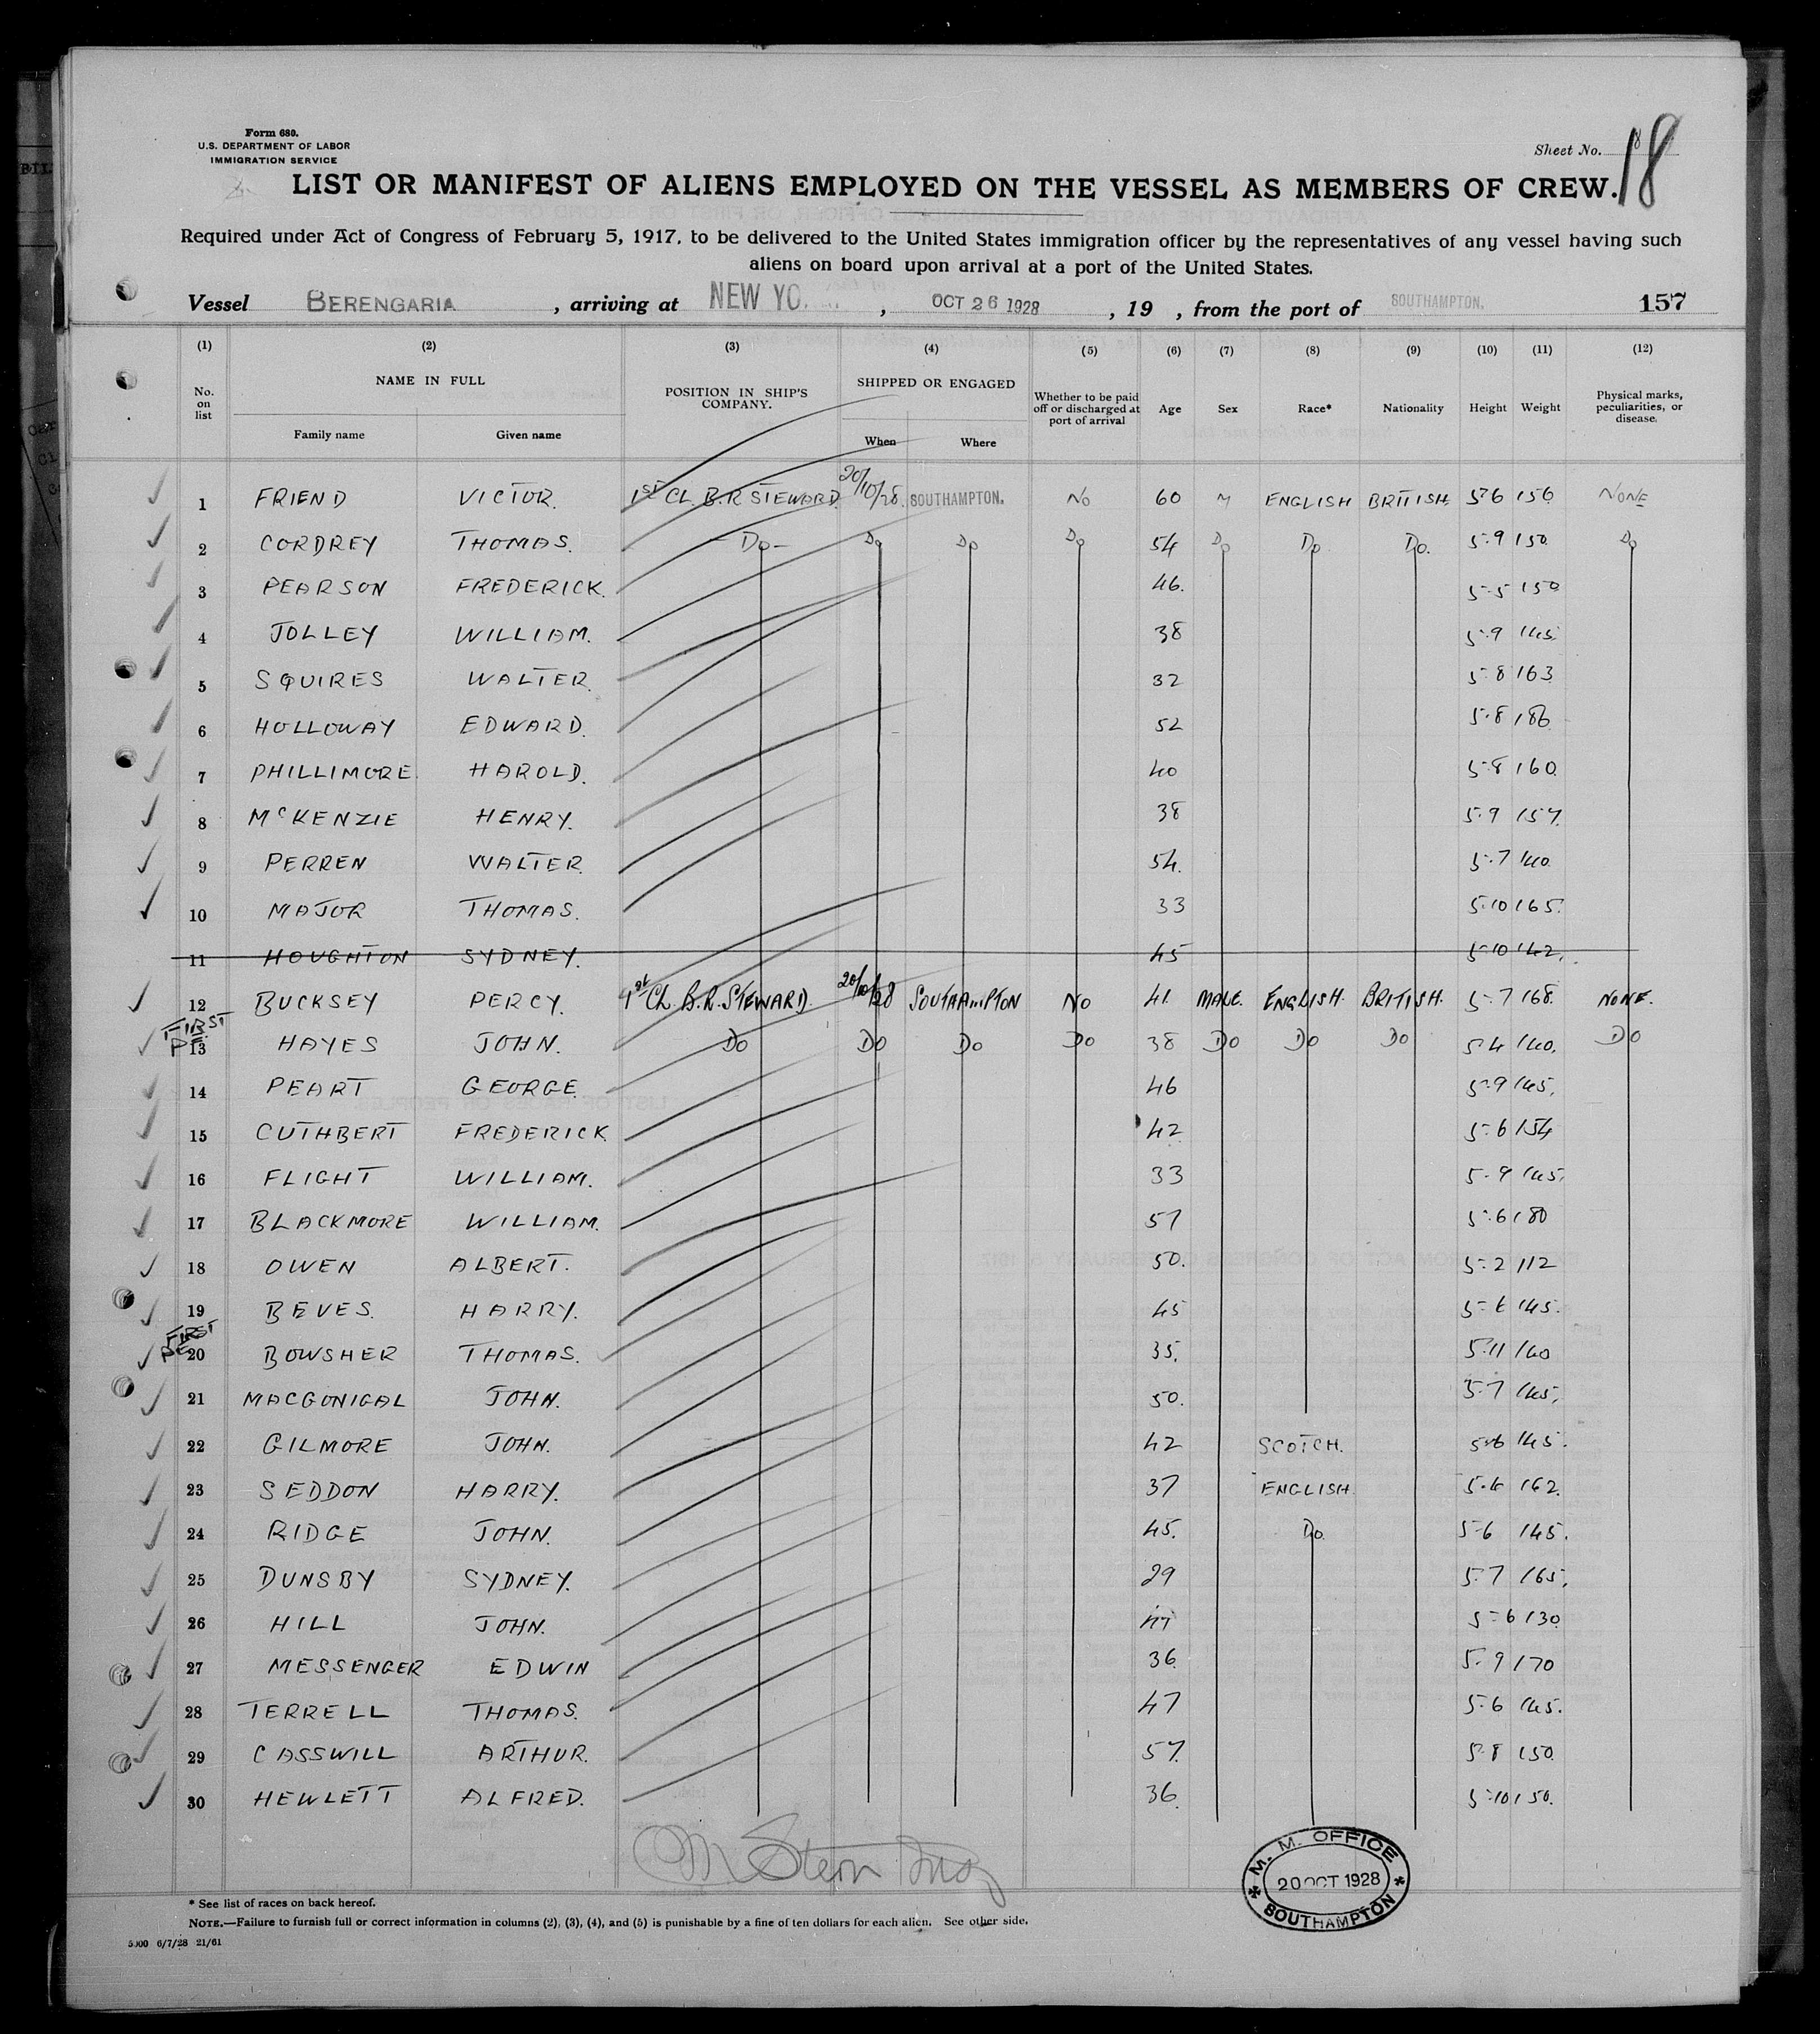 Form 680.
U.S. DEPARTMENT OF LABOR
IMMIGRATION SERVICE
Sheet No. 18
LIST OR MANIFEST OF ALIENS EMPLOYED ON THE VESSEL AS MEMBERS OF CREW.
Required under Act of Congress of February 5, 1917, to be delivered to the United States immigration officer by the representatives of any vessel having such
aliens on board upon arrival at a port of the United States.
Vessel BERENGARIA , arriving at NEW YO , OCT 26 1928 , 19 , from the port of SOUTHAMPTON. 157
(1) (2) (3) (4) (5) (6) (7) (8) (9) (10) (11) (12)
No. on list NAME IN FULL Family name Given name POSITION IN SHIP'S COMPANY. SHIPPED OR ENGAGED When Where Whether to be paid off or discharged at port of arrival Age Sex Race* Nationality Height Weight Physical marks, peculiarities, or disease.
1 FRIEND VICTOR. 1ST CL. B.R STEWARD. 20/10/28. SOUTHAMPTON. No 60 M ENGLISH BRITISH. 5-6 156. NONE
2 CORDREY THOMAS. -Do- Do Do Do 54 Do Do. Do. 5-9 150. Do
3 PEARSON FREDERICK. 46. 5-5 150
4 JOLLEY WILLIAM. 38 5-9 145.
5 SQUIRES WALTER. 32 5-8 163.
6 HOLLOWAY EDWARD. 52 5-8 186
7 PHILLIMORE. HAROLD. 40 5-8 160.
8 McKENZIE HENRY. 38 5-9 157.
9 PERREN WALTER. 54. 5-7 140.
10 MAJOR THOMAS. 33 5-10 165.
11 HOUGHTON SYDNEY. 45 5-10 142.
12 BUCKSEY PERCY. 1st CL. B.R. STEWARD. 20/10/28 SOUTHAMPTON No 41. MALE. ENGLISH. BRITISH. 5-7 168. NONE.
FIRST
13 HAYES JOHN. Do Do Do Do 38 Do Do Do 5-4 140. Do
14 PEART GEORGE. 46 5-9 145.
15 CUTHBERT FREDERICK 42 5-6 154
16 FLIGHT WILLIAM. 33 5-9 145.
17 BLACKMORE WILLIAM. 57 5-6 180
18 OWEN ALBERT. 50. 5-2 112
19 BEVES. HARRY. 45 5-6 145.
FIRST
20 BOWSHER THOMAS. 35. 5-11 140
21 MACGONIGAL JOHN. 50. 5-7 145.
22 GILMORE JOHN. 42 SCOTCH. 5-6 145.
23 SEDDON HARRY. 37 ENGLISH. 5-6 162.
24 RIDGE JOHN. 45. Do. 5-6 145.
25 DUNSBY SYDNEY. 29 5-7 165.
26 HILL JOHN. 5-6 130.
27 MESSENGER EDWIN 36 5-9 170
28 TERRELL THOMAS. 47 5-6 145.
29 CASSWILL ARTHUR. 57. 5-8 150.
30 HEWLETT ALFRED. 36. 5-10 150.
M Stern
M. M. OFFICE
20 OCT 1928
SOUTHAMPTON
* See list of races on back hereof.
NOTE.—Failure to furnish full or correct information in columns (2), (3), (4), and (5) is punishable by a fine of ten dollars for each alien. See other side.
5000 6/7/28 21/61